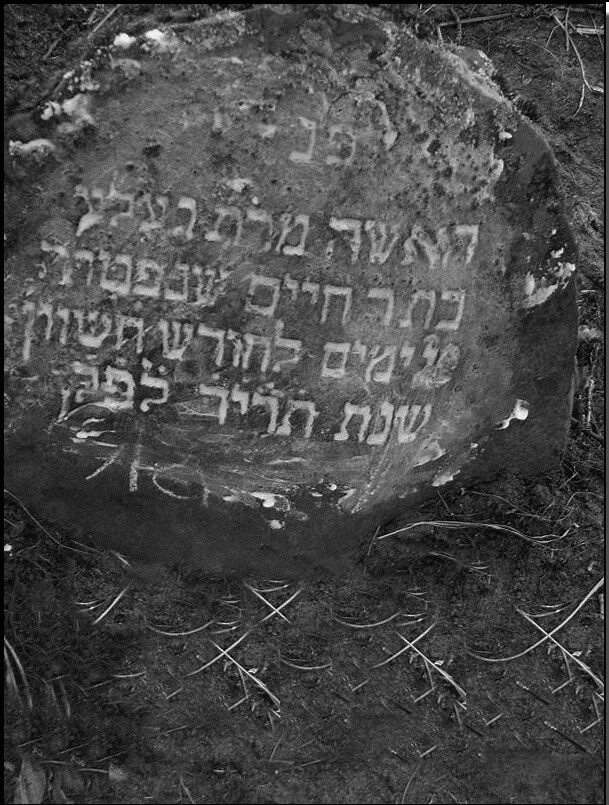 פנ
האשה מרת
בת ר חיים שנפטרה
ימים לחודש חשוון
שנת תרייד לפק